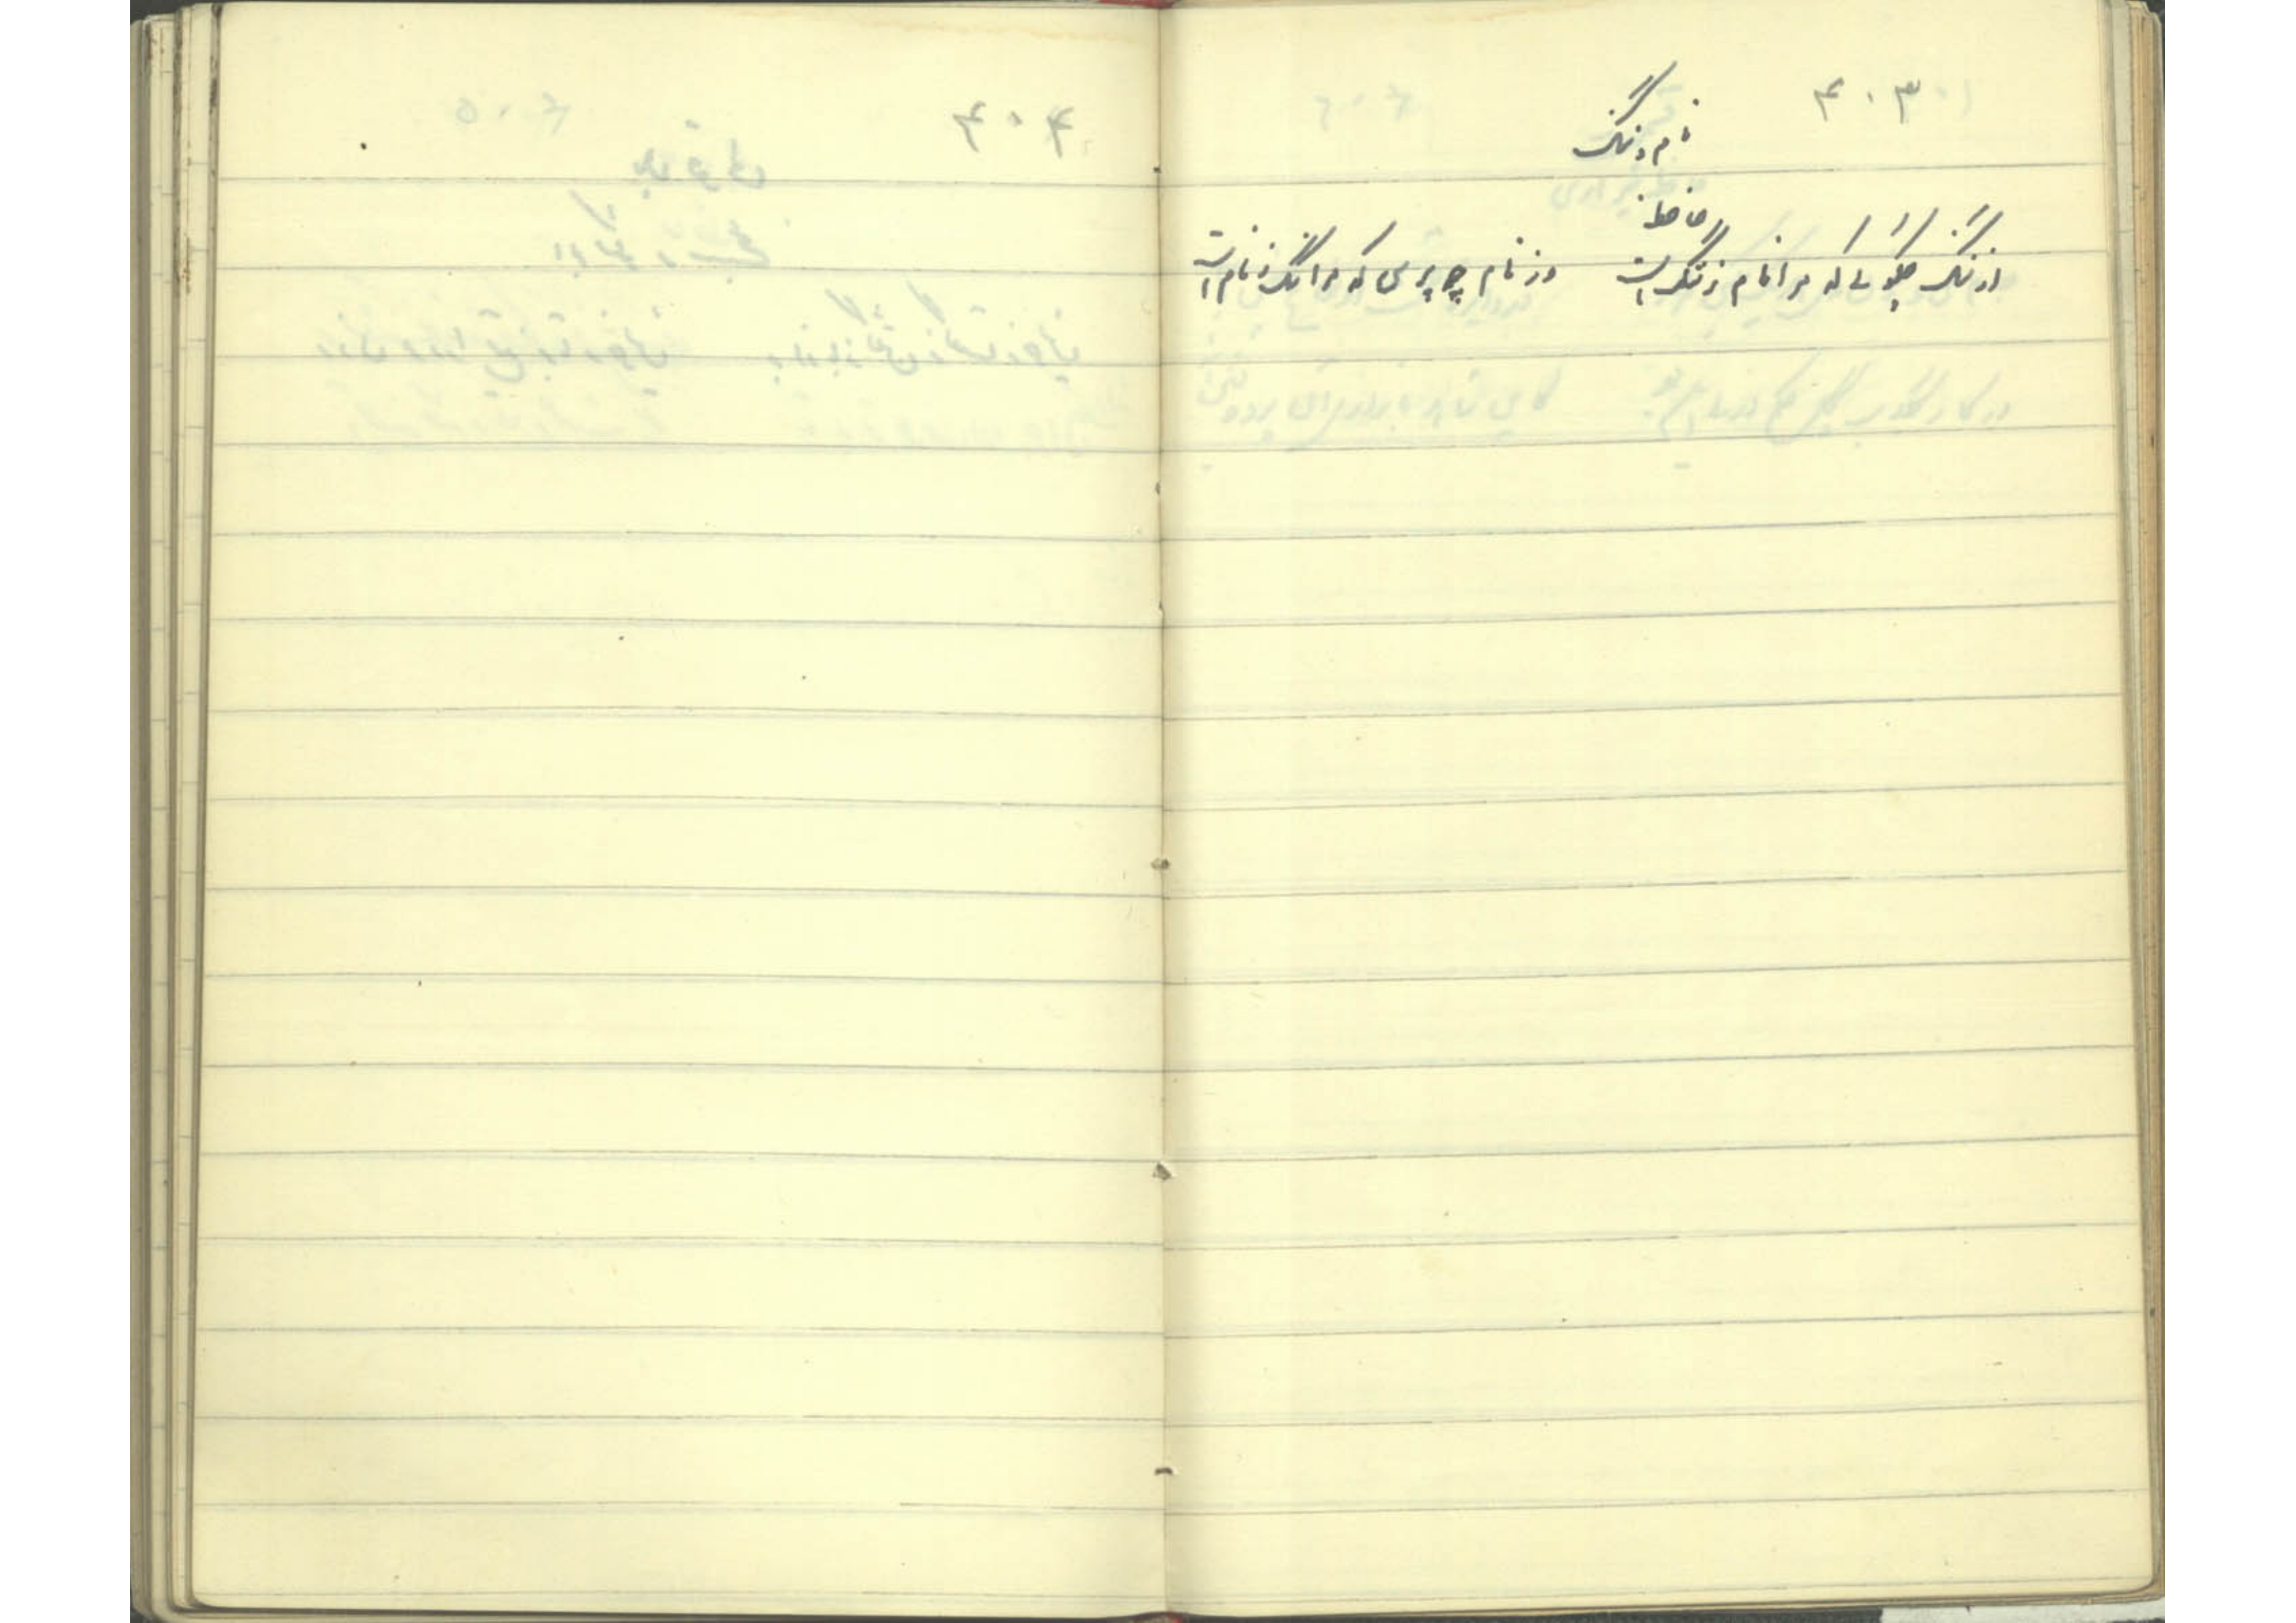 ۴۰۳
نام و ننگ
حافظ
از ننگ چگوئی که مرا نام ز ننگ است وز نام چه پرسی که مرا ننگ ز نام است
۴۰۴